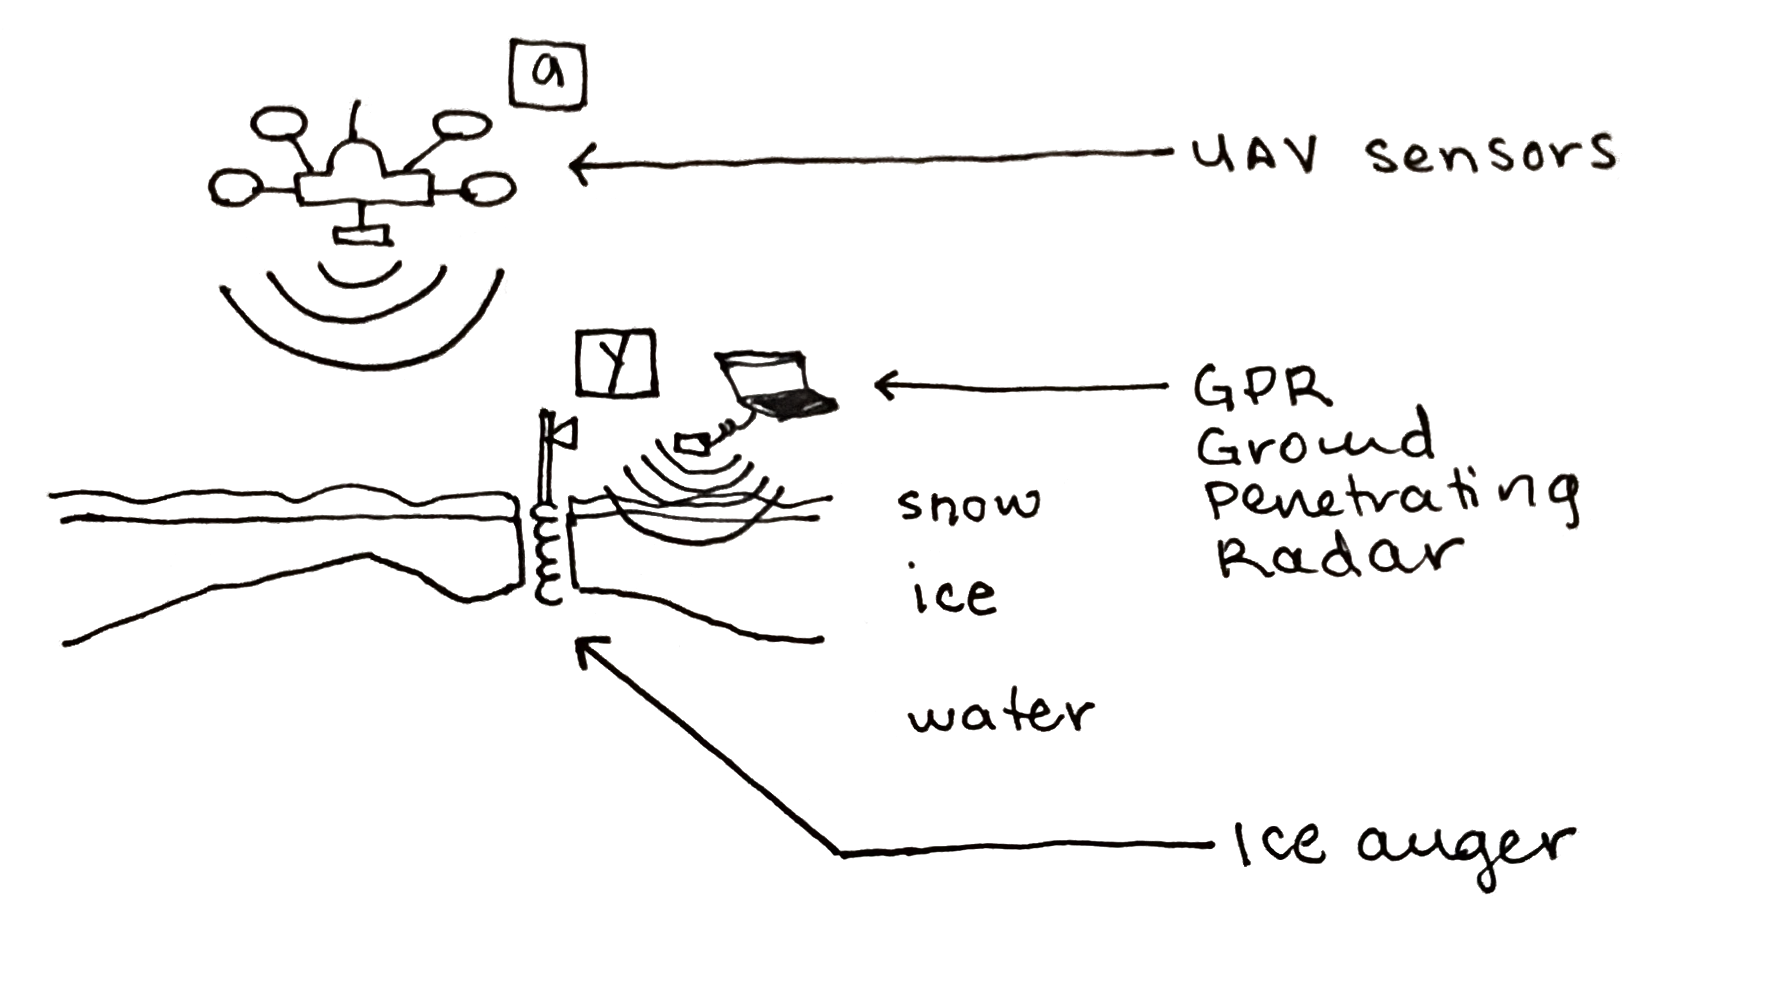 a
UAV sensors
y
GPR
Ground
Penetrating
Radar
snow
ice
water
Ice auger